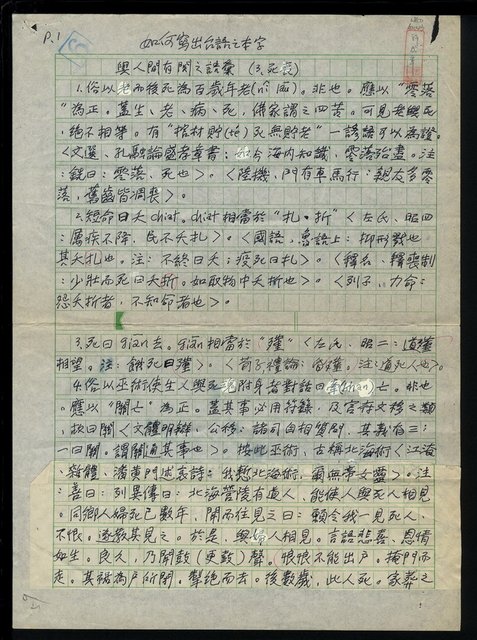 P.1
如何寫出台語之本字
與人間有關之語彙 (3.死喪)
1.俗以老而後死為百歲年老。非也。應以“零落
”為正。蓋生、老、病、死,佛家謂之四苦。可見老與死
絕不相等。有“棺材貯死無貯老”一諺語可以為證。
<文選、孔融論盛孝章書:海內知識,零落殆盡。注
:銑曰:零落、死也>。<陸機、門有車馬行:親友多零
落,舊齒皆凋喪>。
2.短命曰夭chiat。chiat相當於“扎、折”<左氏、昭四
:厲疾不降、民不夭扎>。<國語,魯語上:
其夭扎也。注:不終曰夭;疫死曰扎>。<釋名、釋喪制
:少壯而死曰夭折。如取物中夭折也>。<列子、力命:
怨夭折者,不知命者也>。
3.死曰 去。 相當於“殣”<左氏、昭二:道殣
相望。注:餓死曰殣>。<荀子禮論: 。注:道死人也>。
4.俗以巫術使生人與死 附身者對話曰 亡。非也
。應以“關亡”為正。蓋其事必用符籙,及官府文移之類
,故曰關<文體明辨、公移:諸司自相質問,其義有三:
一曰關。謂關通其事也>。按此巫術,古稱北海術<江淹
、雜體、潘黃門述哀詩:我慙北海術,爾無帝女靈>。注
:善曰:列異傳曰:北海營陵有道人,能使人與死人相見
。同鄉人婦死已數年,聞而往見之曰:願令我一見死人,
不恨。遂教其見之。於是,與婦人相見。言語悲喜、恩情
如生。良久,乃聞鼓聲。恨恨不能出戶。掩門而
走。其裾為戶所閉。掣絕而去。後數歲,此人死。家葬之